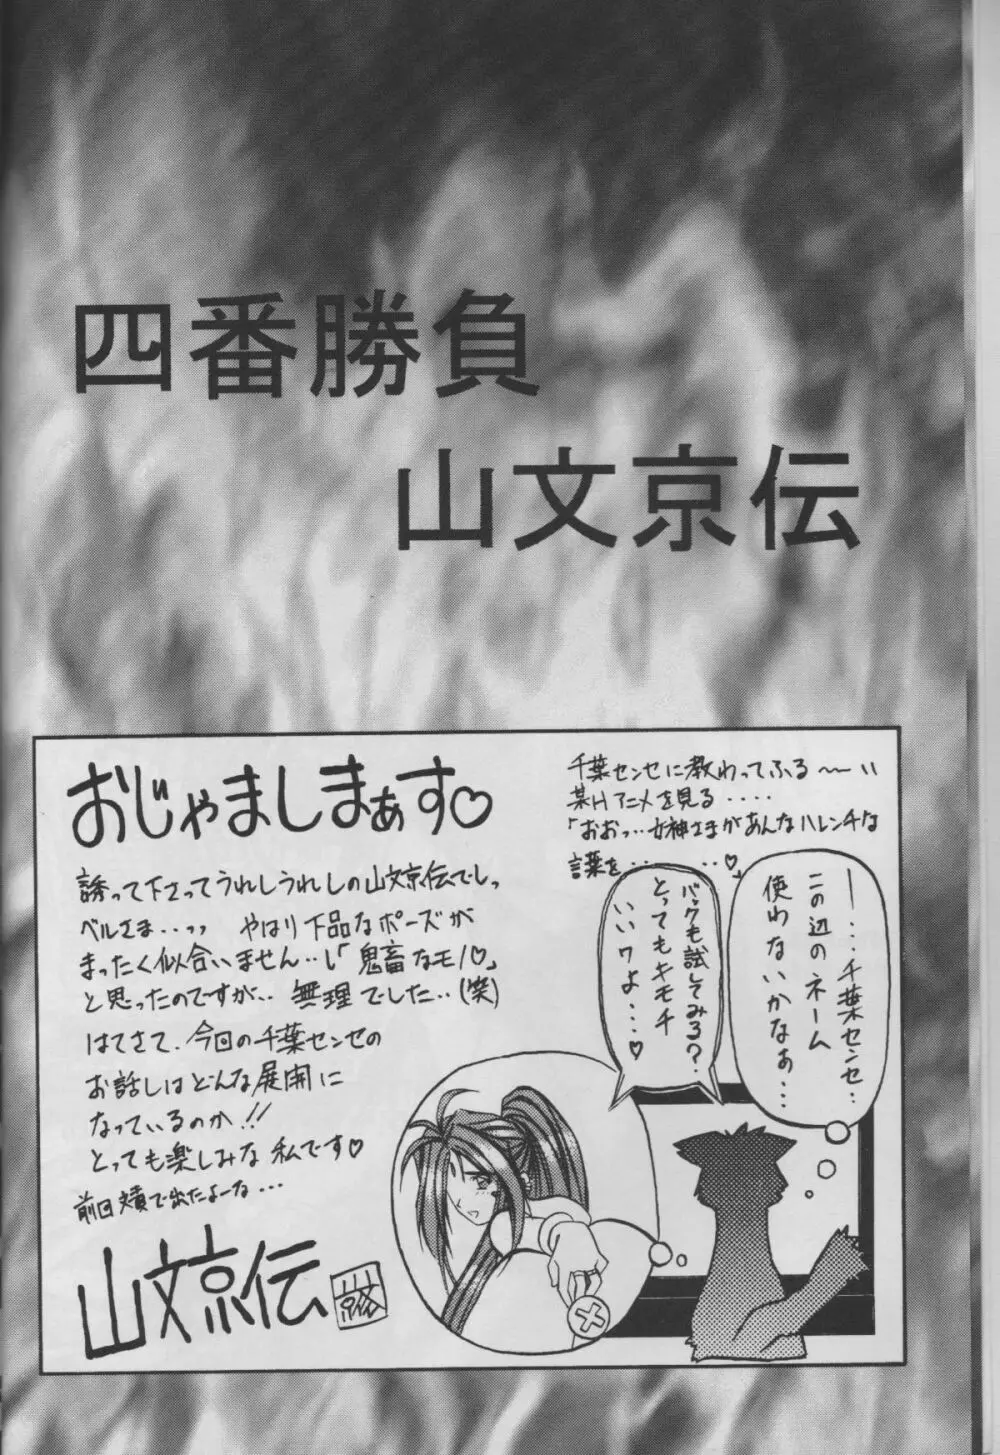 四番勝負
山文京伝
おじゃましまぁす♡
誘って下さってうれしうれしの山文京伝でしっ
ベルさま・・・ッッ　やはり下品なポーズが
まったく似合いません・・し「鬼畜なモノ♡」
と思ったのですが・・無理でした・・(笑)
はてさて、今回の千葉センセの
お話しはどんな展開に
なっているのか!!
とっても楽しみな私です♡
前回対績で出たよーな・・・
山文京伝
千葉センセに教わってふる〜〜い
某Hアニメを見る・・・・
「おおっ・・・女神さまがあんなハレンチな
言葉を・・・・・・・♡」
ー・・・千葉センセ・・
この辺のネーム
使わないかなぁ・・・
バックも試してみる?・・
とってもキモチ
いいワよ・・・♡